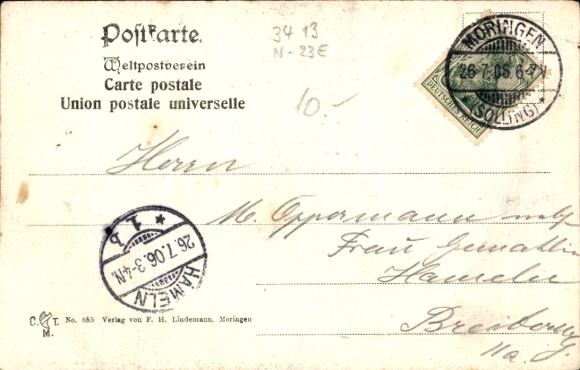 Postkarte.
Weltpostverein
Carte postale
Union postale universelle
34 13
N-23E
10.-
MORINGEN
26.7.06.6-7V
(SOLLING)
DEUTSCHES REICH
Herrn
M. Oppermann nebst
Frau Gemahlin
Hameln
HAMELN
26.7.06.3-4N.
* 1 b
C. T. M. No. 885 Verlag von F. H. Lindemann, Moringen
11a.